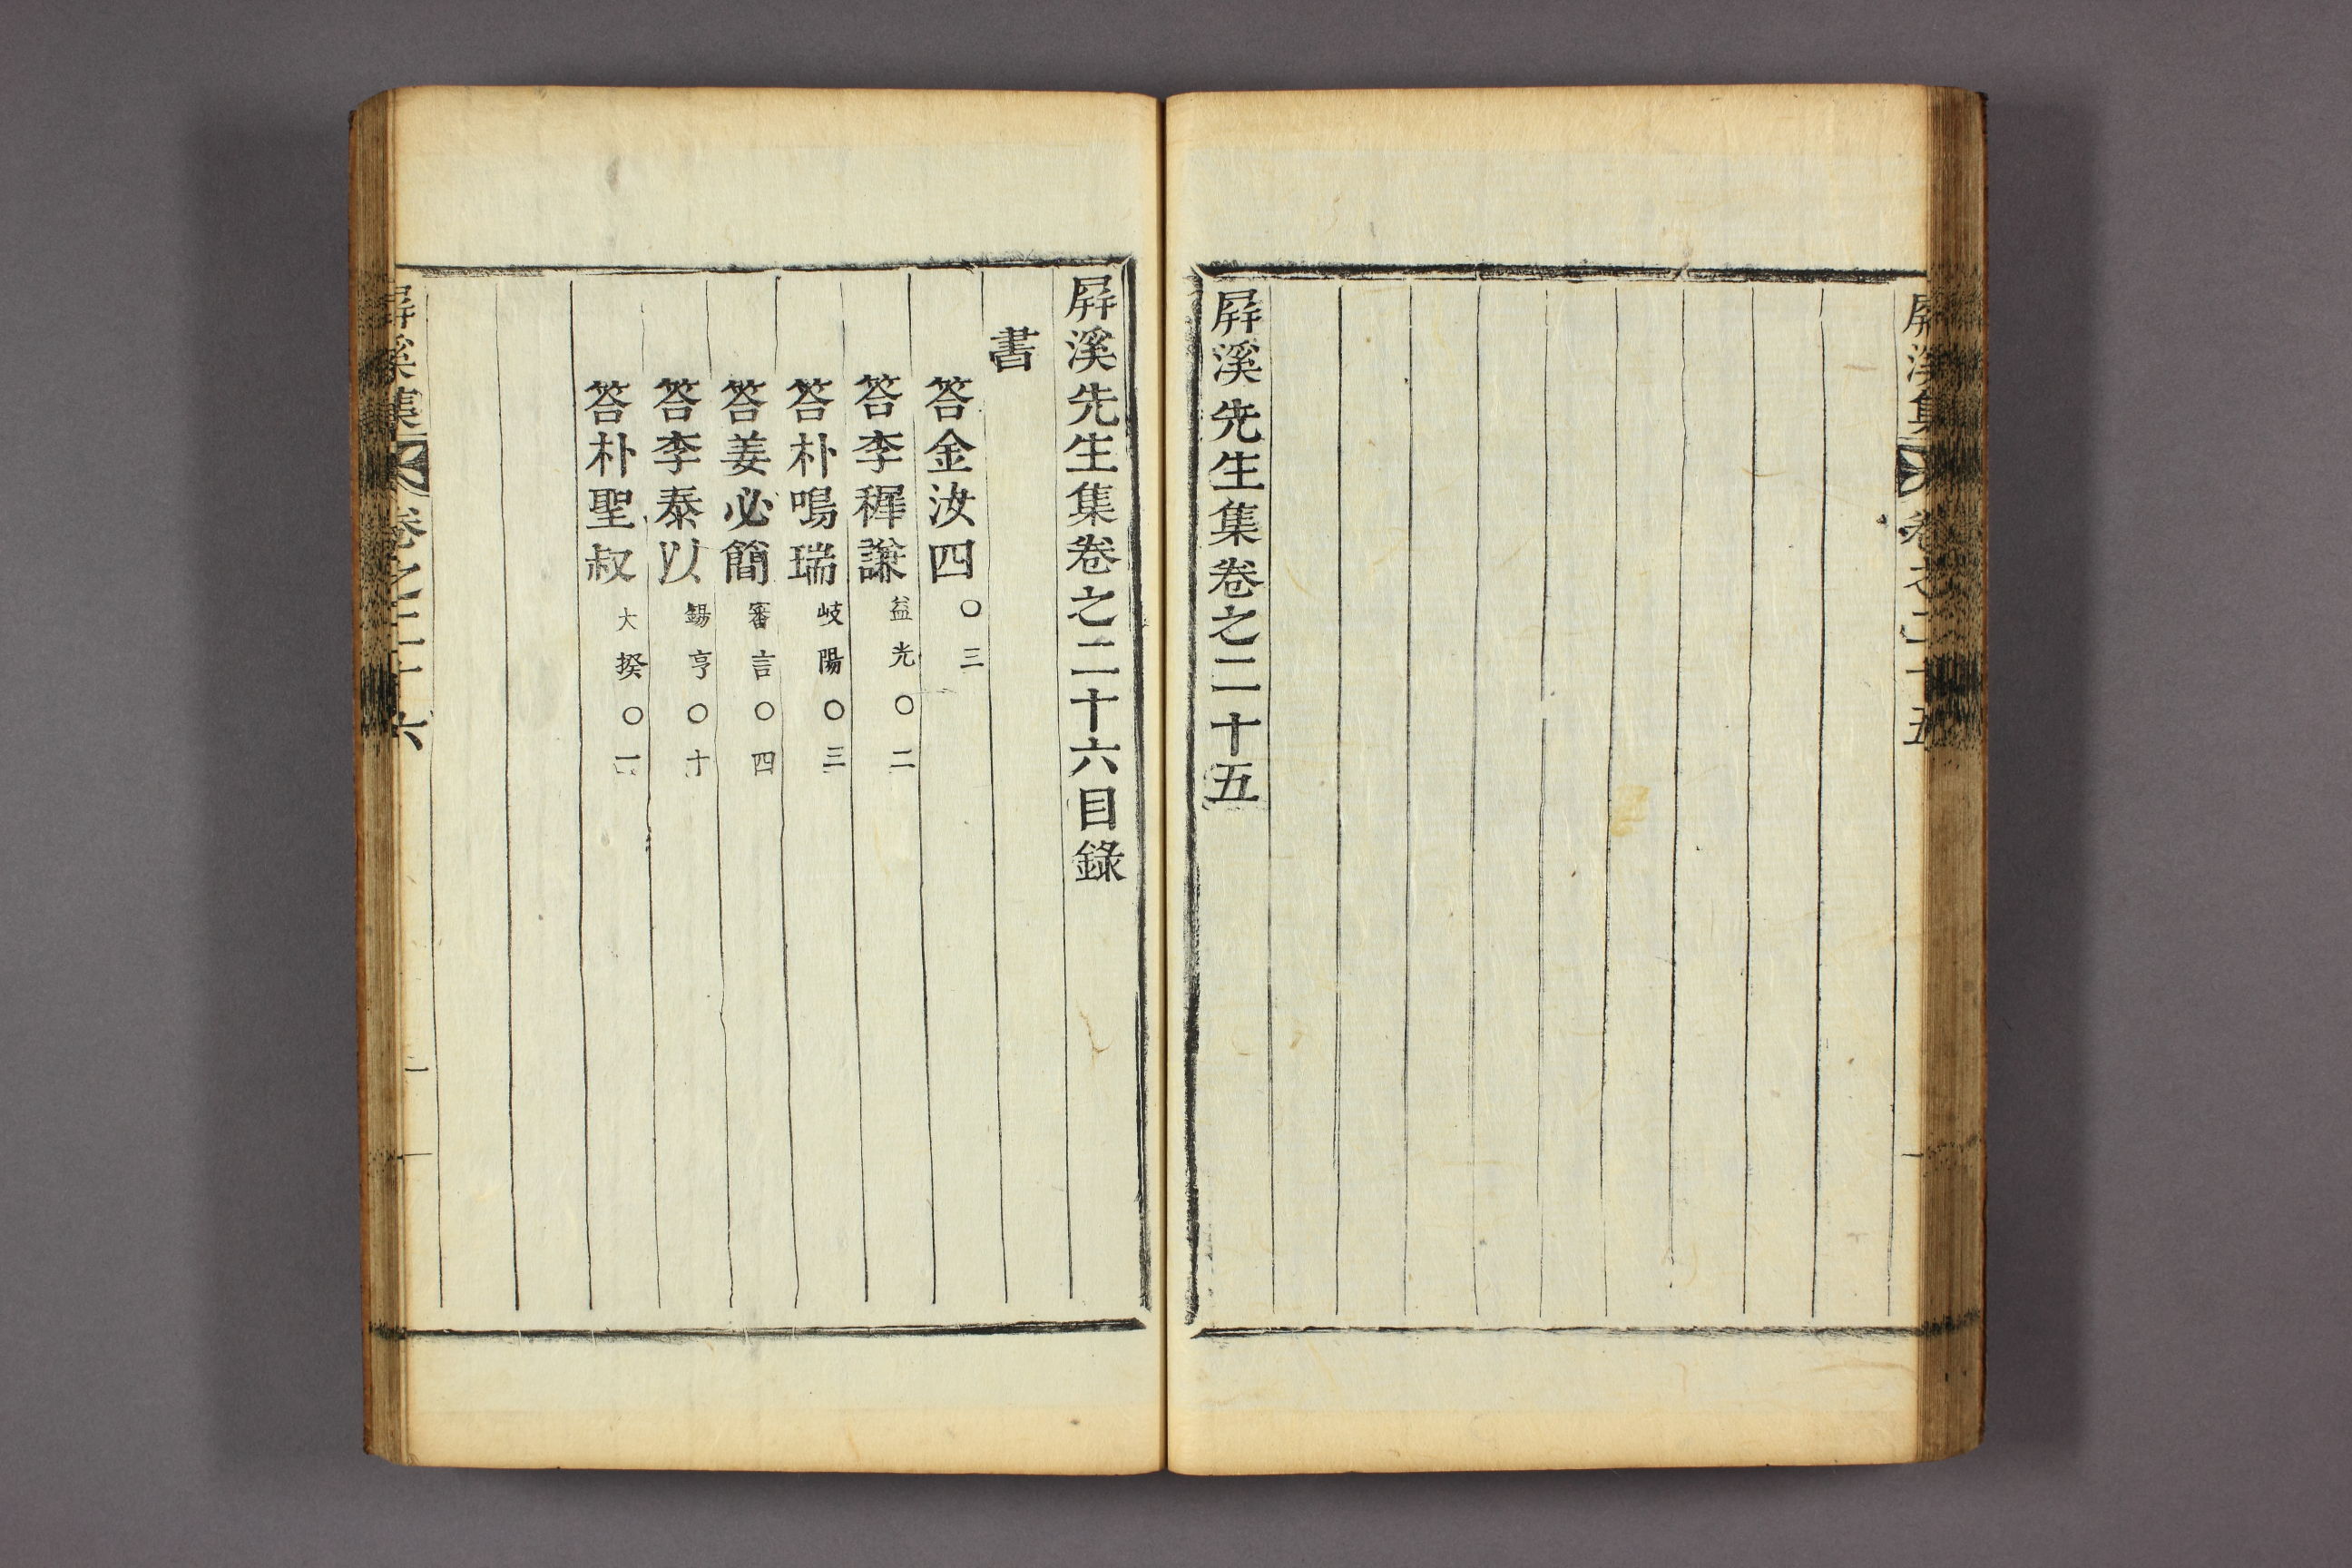 屛溪集 卷之二十五
屛溪先生集卷之二十五
屛溪先生集卷之二十六目錄
書
答金汝四○三
答李穉謙益光○二
答朴鳴瑞岐陽○三
答姜必簡審言○四
答李泰以錫亨○十
答朴聖叔大揆○一
屛溪集 卷之二十六 一